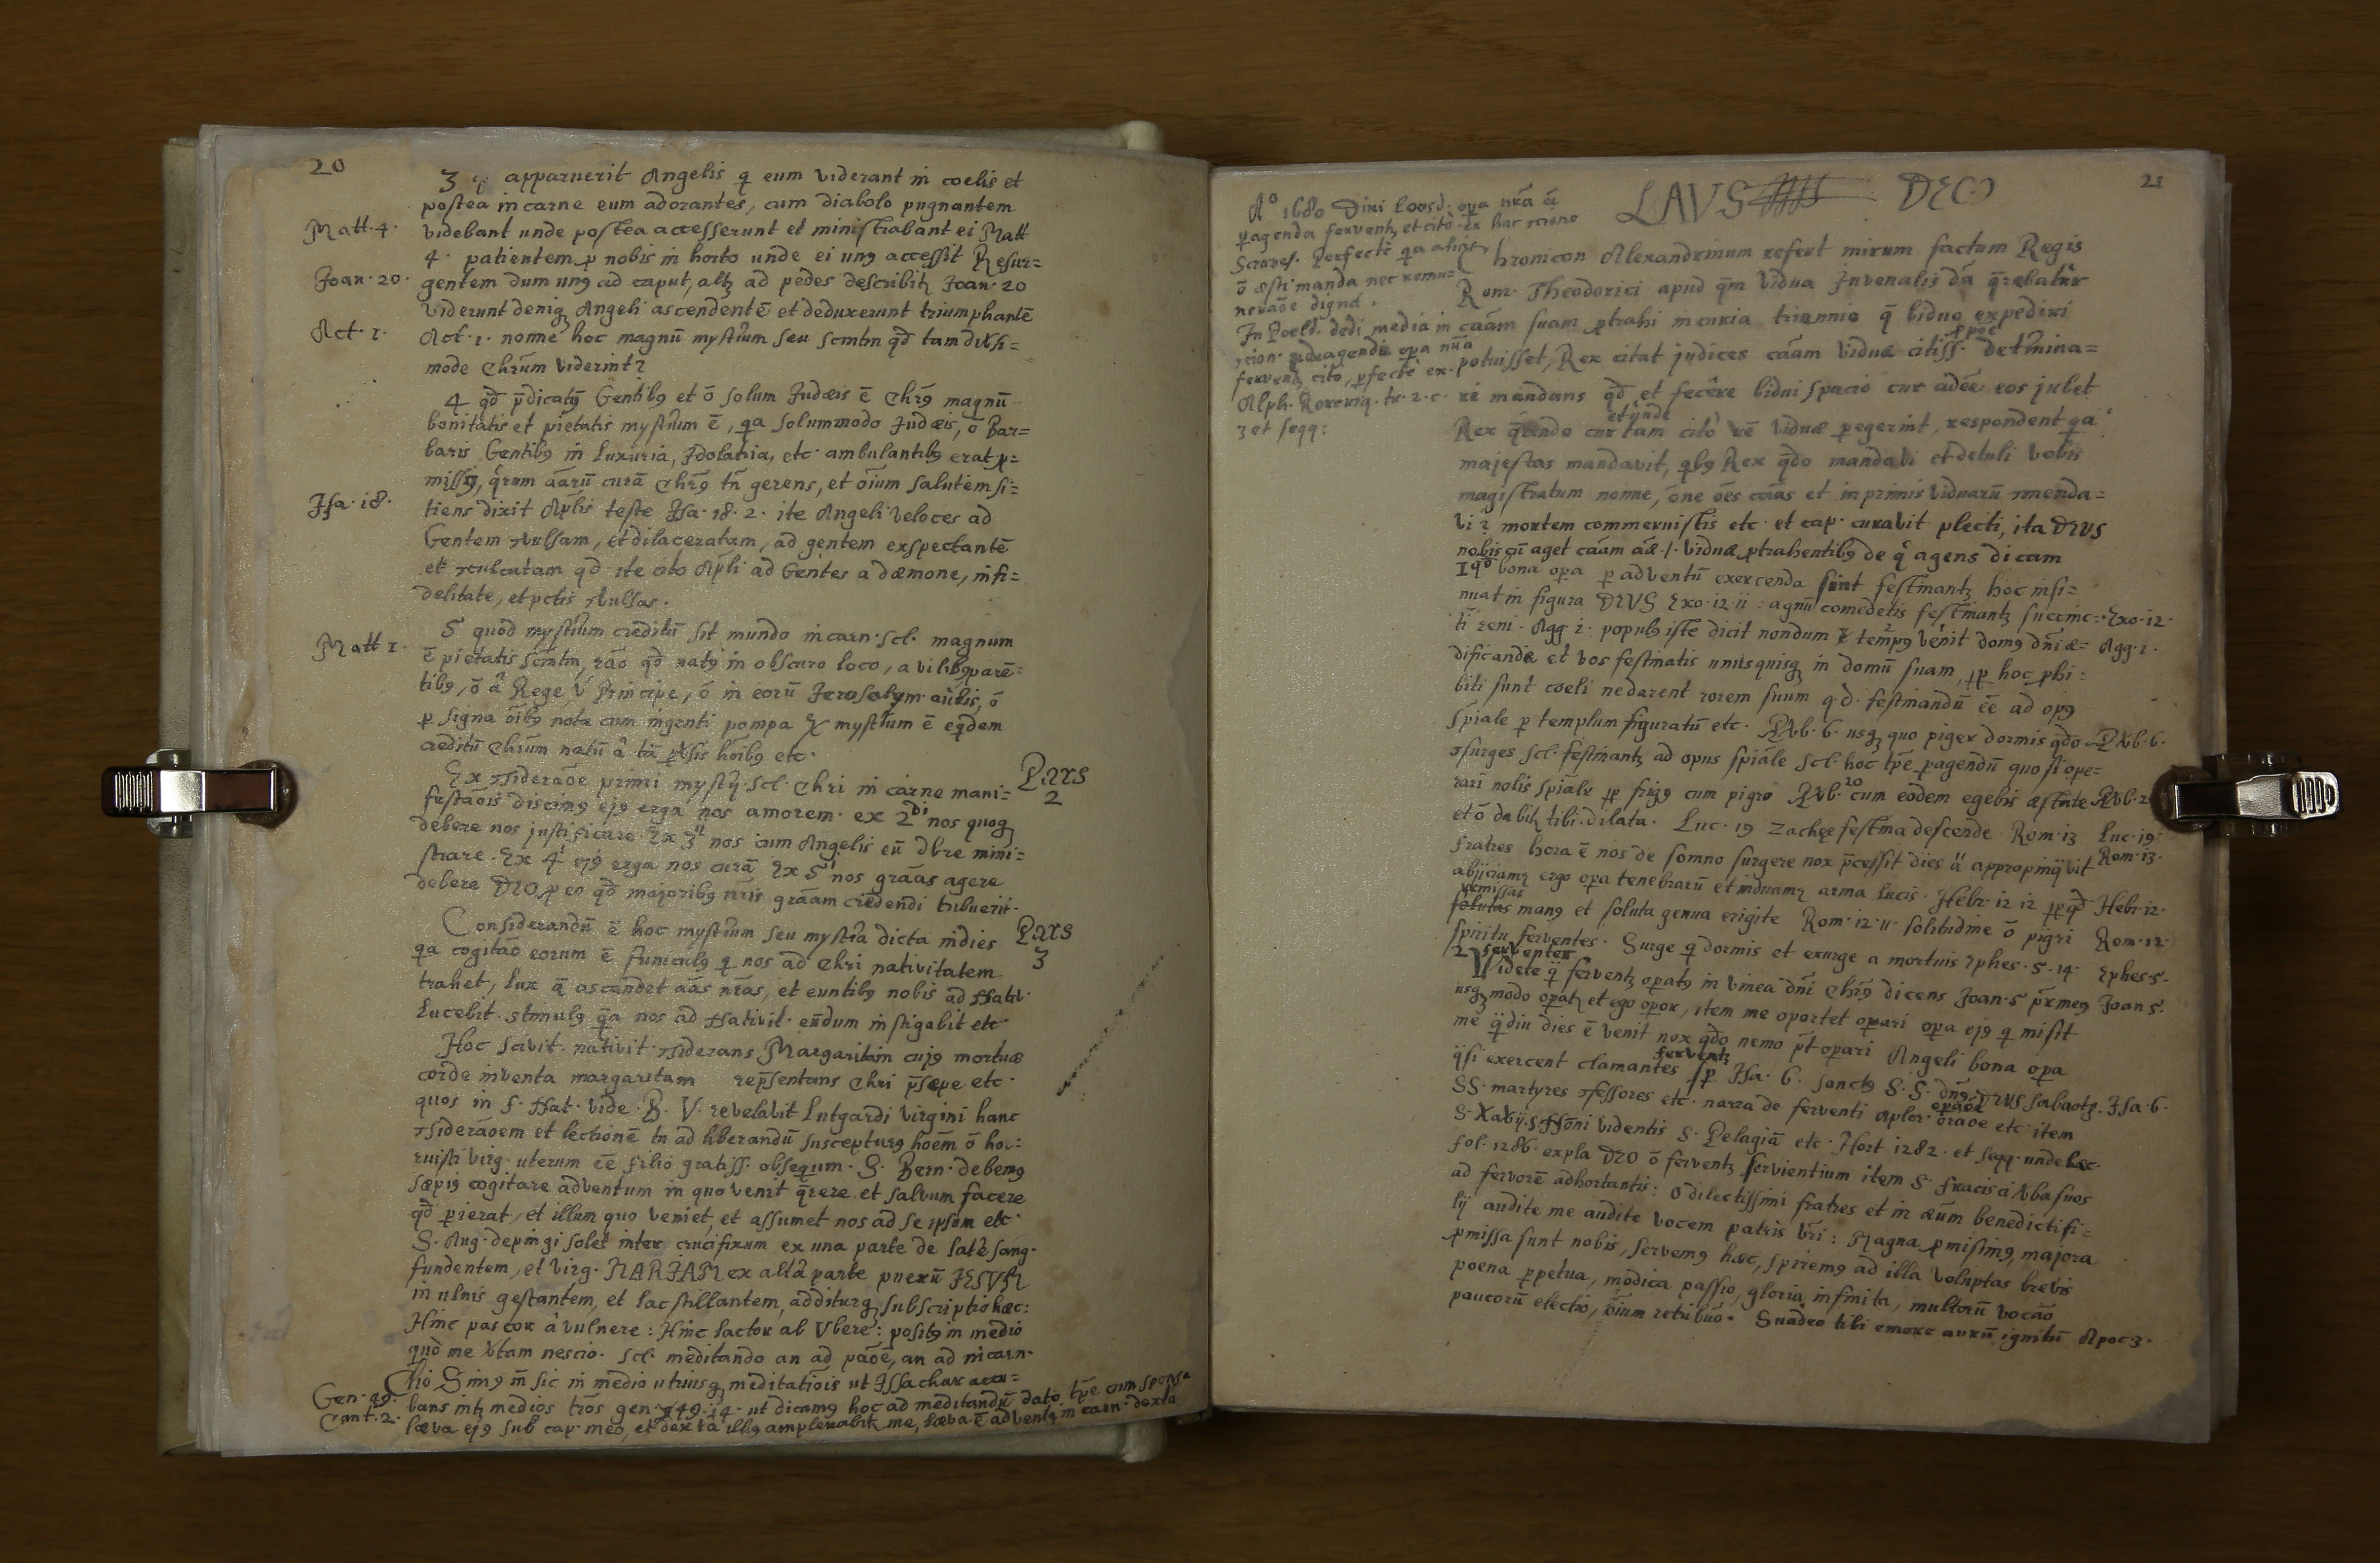 20
3 apparuerit Angelis q eum viderant in coelis et
postea in carne eum adorantes, cum diabolo pugnantem
Matt. 4. videbant unde postea accesserunt et ministrabant ei Matt
4. patientem p nobis in horto unde ei unq accessit Resur=
Joan. 20. gentem dum unq ad caput, altz ad pedes describitz Joan. 20
viderunt deniqz Angeli ascendentē et deduxerunt triumphantē
Act. 1. Act. 1. nonne hoc magnū mystium seu scmtn qd̄ tam
mode Chrūm viderint?
4 qd̄ p̄dicatq Gentibq et ō solum Judæis ē Chrq magnū
bonitatis et pietatis mystium ē, qa solummodo Judæis, ō Bar=
baris Gentibq in luxuria, Idolatria, etc. ambulantibq erat p=
missq, qrum aārū curā Chrq tn̄ gerens, et oīum salutem si=
Isa. 18. tiens dixit Aplis teste Isa. 18. 2. ite Angeli veloces ad
Gentem vulsam, et dilaceratam, ad gentem exspectantē
et culcatam qd̄ ite cito Apli ad Gentes a dæmone, infi=
delitate, et pctis vulsas.
5 quod mystium creditū sit mundo incarn. scl. magnum
Matt 1. ē pietatis scmtn, rāo qd̄ natq in obscuro loco, a vilibq parē=
tibq, ō â Rege, v̄ Principe, ō in eorū Jerosolym. aulis, ō
p signa oībq nota cum ingenti pompa mystium ē eqdem
creditū Chrūm natū â tā psis hoībq etc.
Ex siderāoe primi mystij. scl. Chri in carne mani= Pars
festāois discimq ejq erga nos amorem. ex 2di nos quoqz 2
debere nos justificare. Ex 3ii nos cum Angelis eū dbre mini=
strare. Ex 4i ejq erga nos curā Ex 5i nos graās agere
debere DEO p eo qd̄ majoribq nris graām credendi tribuerit.
Considerandū ē hoc mystium seu mystia dicta indies Pars
qa cogitāo eorum ē funiculq q nos ad Chri nativitatem 3
trahet, lux q̄ ascendet aās nras, et euntibq nobis ad Nativ.
lucebit. stimulq q̄a nos ad Nativit. eūdum instigabit etc.
Hoc scivit. nativit. siderans Margaritam cujq mortuæ
corde inventa margaritam rep̄sentans Chri p̄sepe etc.
quos in f. Nat. vide. B. V. revelavit Lutgardi virgini hanc
siderāoem et lectionē tn ad liberandū suscepturq hoēm ō hor=
ruisti virg. uterum ēē filio gratiss. obsequm. S. Bern. debemq
sæpiq cogitare adventum in quo venit q̄rere et salvum facere
qd̄ pierat, et illum quo veniet, et assumet nos ad se ipsum etc.
S. Aug. depingi solet inter crucifixum ex una parte de late sang.
fundentem, et virg. MARIAM ex altâ parte puerū JESUM
in ulnis gestantem, et lac stillantem, additurqz subscriptio hæc:
Hinc pascor â vulnere: Hinc lactor ab Vbere: positq in medio
quo me vtam nescio. scl. meditando an ad pāoē, an ad incarn.
Simq in̄ sic in medio utriusqz meditatiois ut Issachar accu=
Gen. 49. bans intz medios tros gen. 49. 14. ut dicamq hoc ad meditandū dato tpe cum sponsa
Cant. 2. læva ejq sub cap. meo, et dextâ illiq amplexabitz me, læva ē adventq in carn. dexta
21
LAVS DEO
Aº 1680 Dixi Loosd. opa nrā ā
pagenda ferventz et cito. Ex hac
Perfectè qa
ō æstimanda nec remu=
nerāoe digna.
In Poelt. dedi media in
agendi opa nrā
ferventz, cito, pfecte ex.
Alph. Roderiq. tr. 2. c.
3 et seqq:
Chronicon Alexandrinum refert mirum factum Regis
Rom. Theodorici apud q̄m vidua Juvenalis dā q̄rebatur
caām suam ptrahi in curia triennio q̄ biduo expediri
potuisset, Rex citat judices caām viduæ citiss. detmina=
re mandans qd̄ et fecêre bidui spacio cur adēē eos jubet
Rex q̄rendo cur tam cito rē viduæ pegerint, respondent qa
majestas mandavit, qbq Rex q̄do mandavi et detuli vobis
magistratum nonne, ōne ōēs caās et inprimis viduarū menda=
vi? mortem commeruistis etc. et cap. curavit plecti, ita DEUS
nobiscū aget caām aæ. /. viduæ ptrahentibq de q̂ agens dicam
1qº bona opa p adventū exercenda sint festinantz hoc insi=
nuat in figura DEVS Exo. 12. 11: agnū comedetis festinantz succinc= Exo. 12.
ti reni. Agg. 1: populq iste dicit nondum tempq venit domq dni æ= Agg. 1.
dificandæ et vos festinatis unusquisqz in domū suam, pp hoc phi=
biti sunt coeli ne darent rorem suum q.d. festinandū ēē ad opq
spiale p templum figuratū etc. Pvb. 6. usqz quo piger dormis q̄do Pvb. 6.
surges scl. festinantz ad opus spiāle scl. hoc tpe pagendū quo si ope=
rari nolis spialr pp frigq cum pigro Pvb. 20 cum eodem egebis æstate Pvb. 2
et ō dabitz tibi. dilata. Luc. 19 Zachee festina descende. Rom. 13 Luc. 19.
fratres hora ē nos de somno surgere nox p̄cessit dies ā appropinqvit Rom. 13.
abjiciamq ergo opa tenebrarū et induamq arma lucis. Hebr. 12 12 ppqd̄ Hebr. 12.
remissas manq et soluta genua erigite Rom. 12. 11. solitudine ō pigri Rom. 12.
spiritu ferventes. Surge q dormis et exurge a mortuis Ephes. 5. 14. Ephes. 5.
2 ferventer
Videte q̄ ferventz opatq in vinea dni Chrq dicens Joan. 5 pr meq Joan 5.
usqz modo opatz et ego opor, item me oportet opari opa ejq q misit
me q̄diu dies ē venit nox q̄do nemo pt opari Angeli bona opa
q̄si exercent clamantes ferventz Isa. 6. sanctq S. S. dnq DEUS Sabaoth. Isa. 6.
SS. martyres fessores etc. narra de ferventi Aplor. orāoe etc item
S. Xavij. S. Nōni videntis S. Pelagiā etc. Hort 1282. et seqq. unde hæc.
fol. 1286. expla DEO ō ferventz servientium item S. Fracisci vba suos
ad fervorē adhortantis: ō dilectissimi fratres et in æūm benedicti fi=
lij audite me audite vocem patris vri: Magna pmisimq, majora
pmissa sunt nobis, servemq hæc, spiremq ad illa voluptas brevis
poena ppetua, modica passio, gloria infinita, multorū vocāo
paucorū electio, oīum retribuō. Suadeo tibi emere aurū ignitū Apoc. 3.